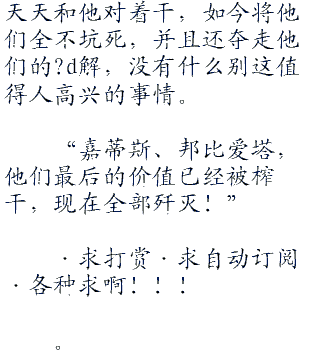 天天和他对着干，如今将他
们全不坑死，并且还夺走他
们的?d解，没有什么别这值
得人高兴的事情。
“嘉蒂斯、邦比爱塔，
他们最后的价值已经被榨
干，现在全部歼灭！”
·求打赏·求自动订阅
·各种求啊！！！
。